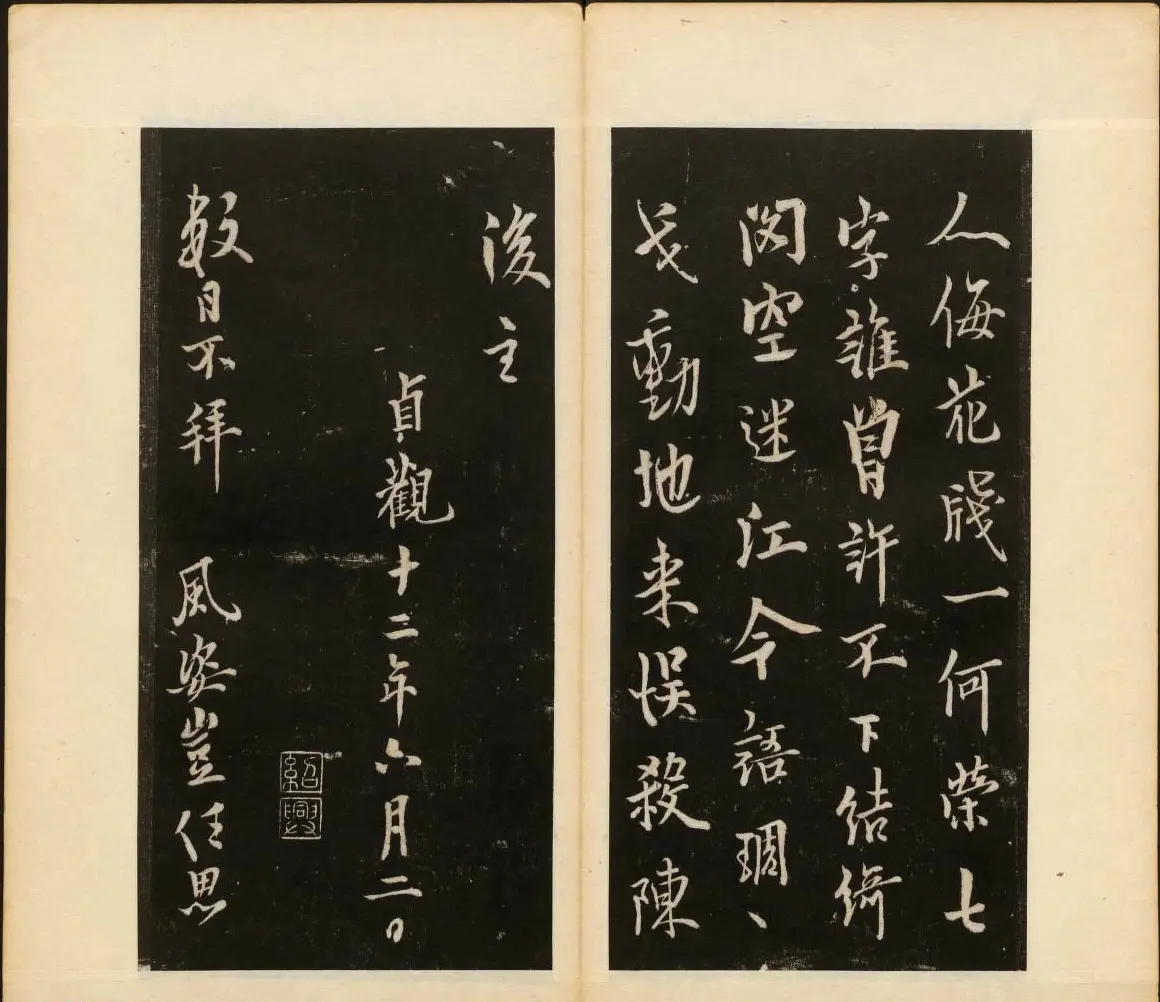 人侮花牋一何荣七
字谁曾許不下结绮
阁空迷江令語琱〻
戈動地来悮殺陳
後主
貞觀十二年六月二日
紹興
數日不拜 風姿豈任思